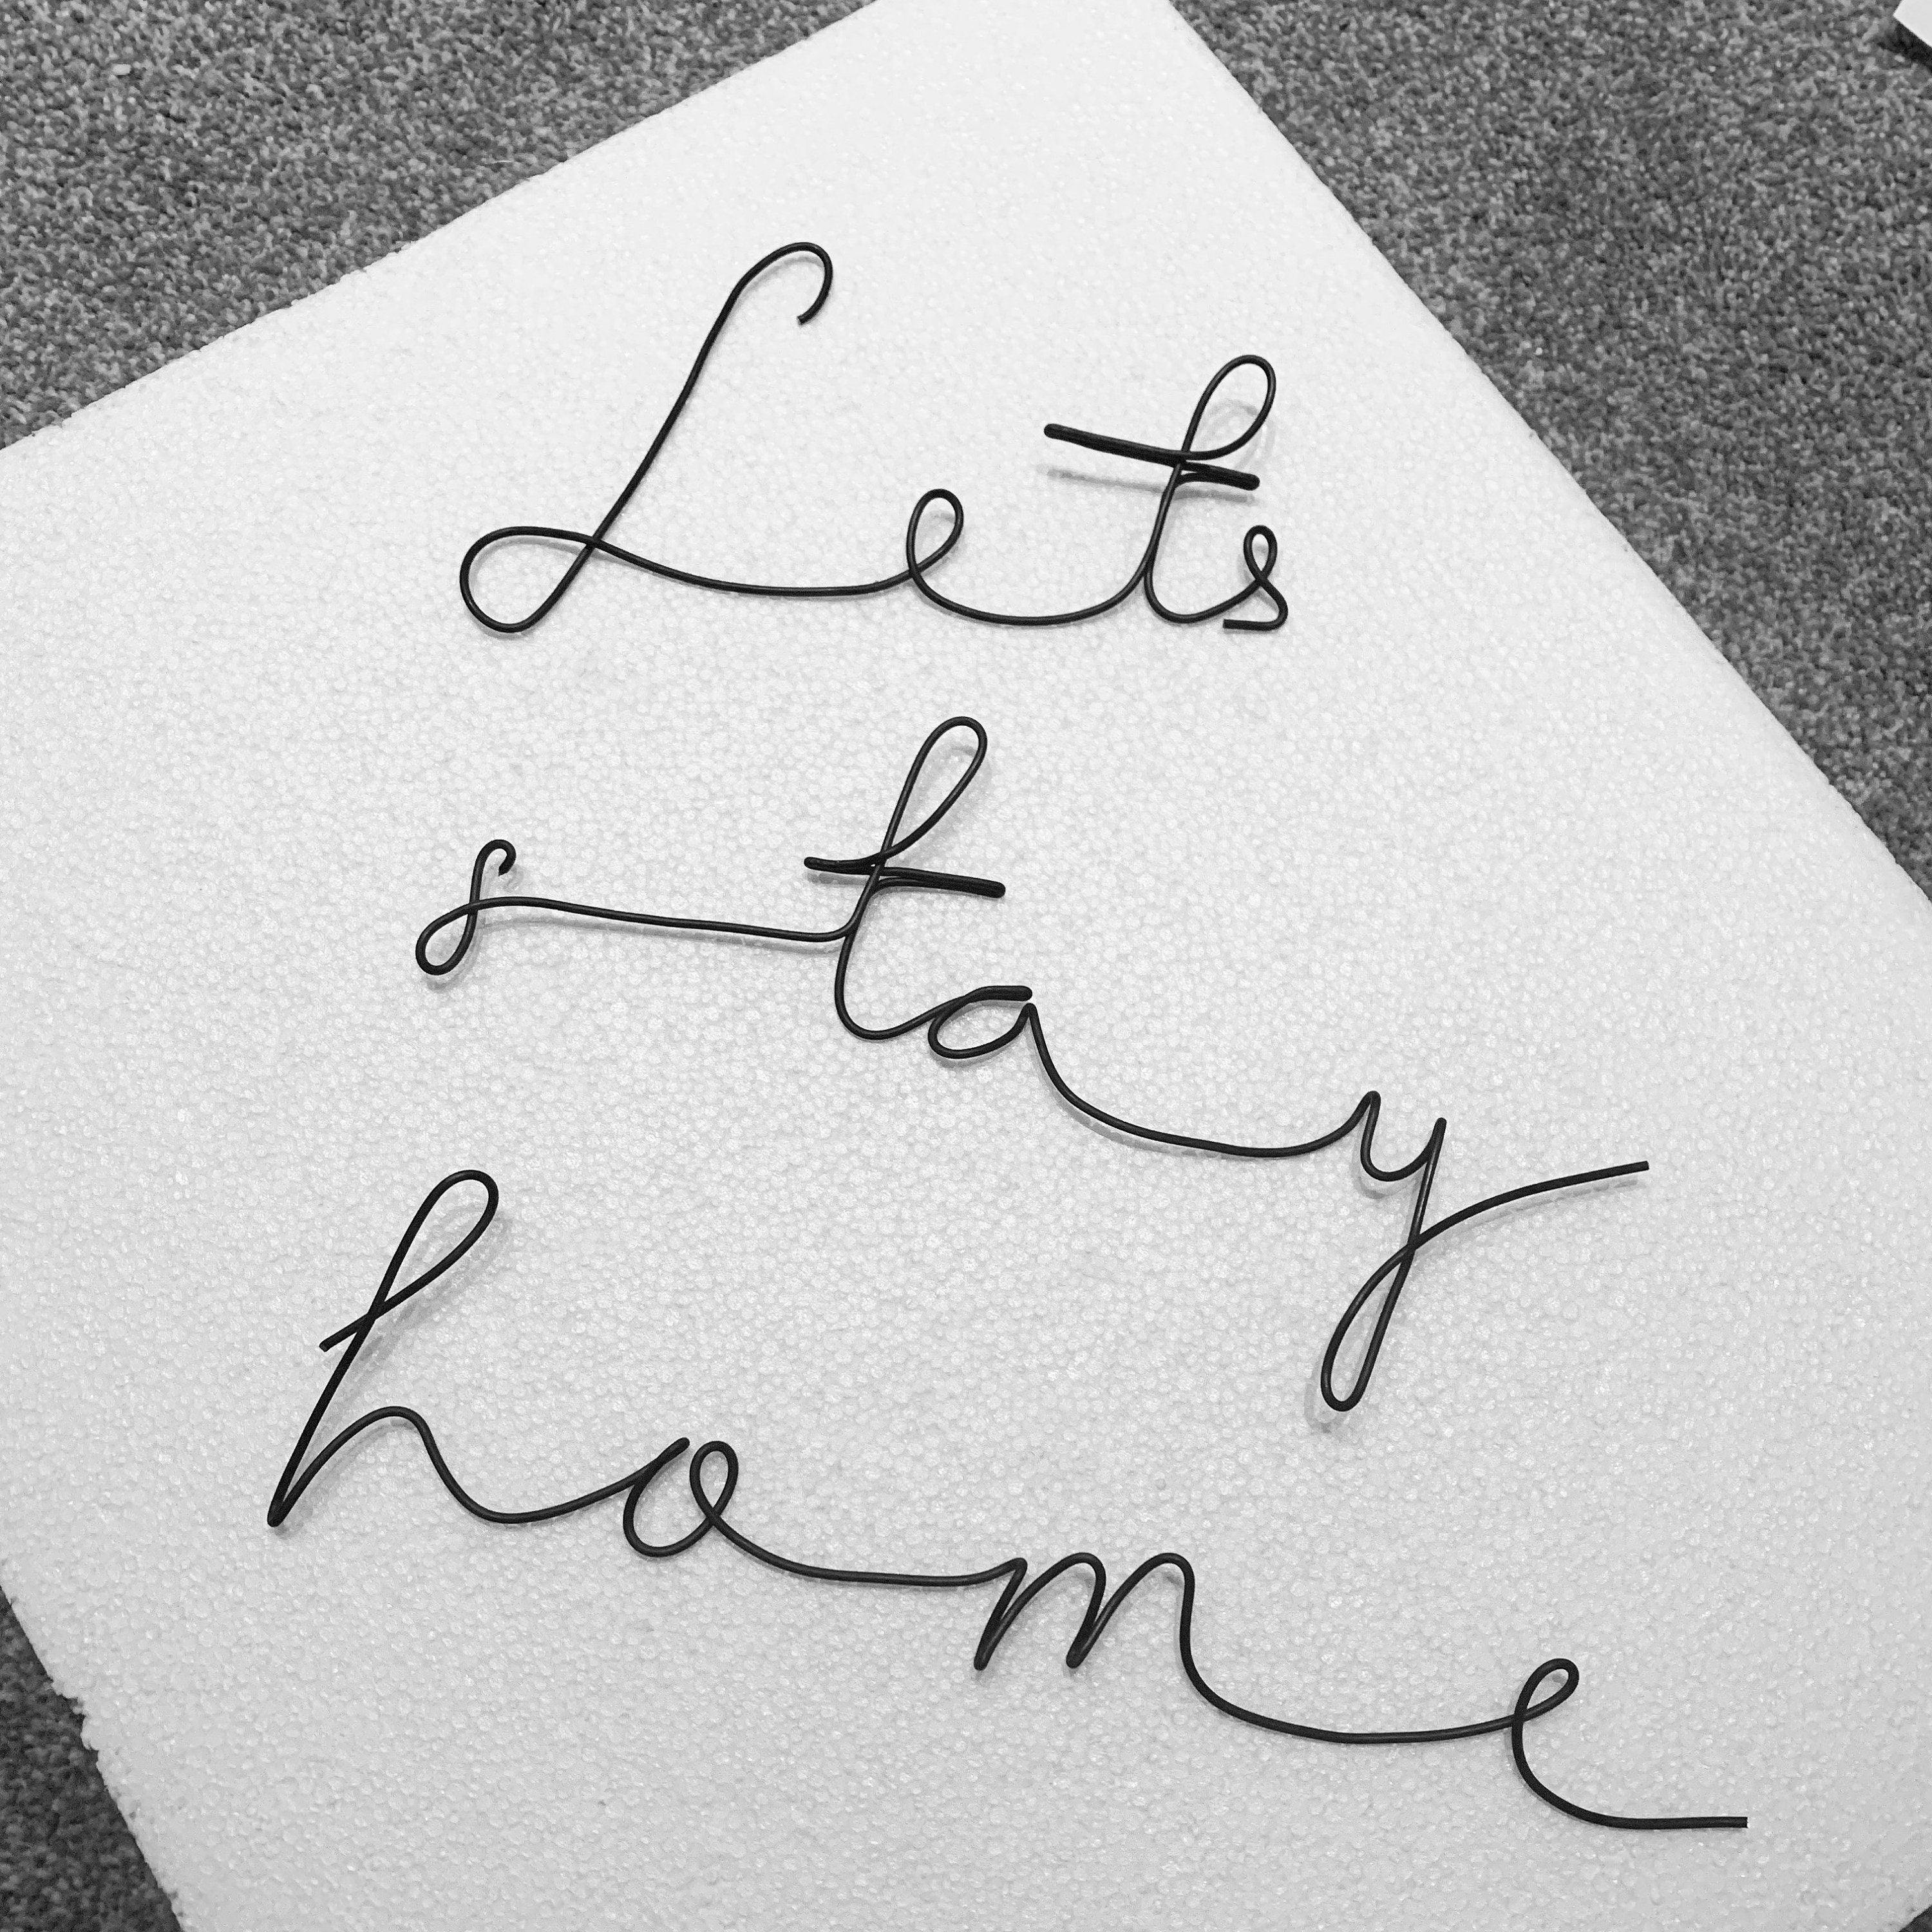 Lets
stay
home